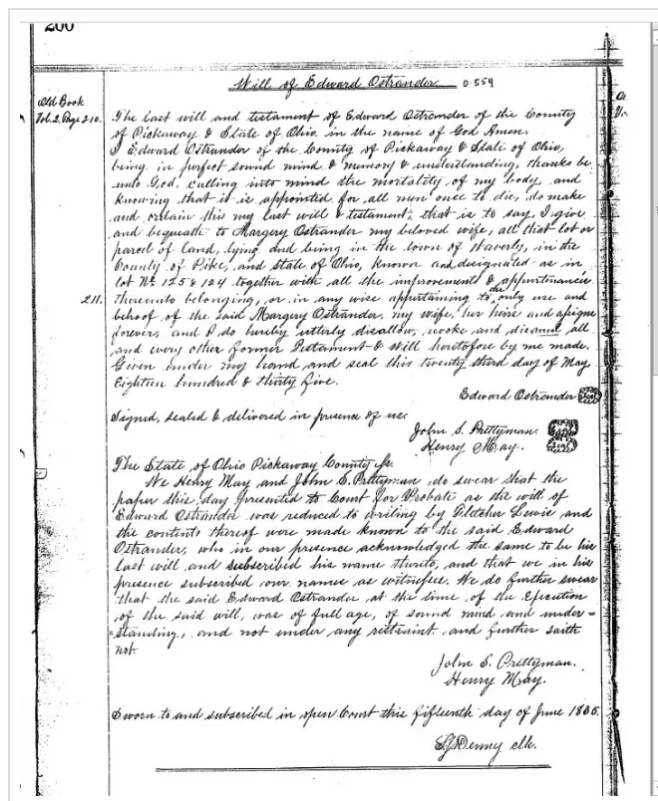 200
Will of Edward Ostrander 0-554
Old Book
Vol. 2. Page 210.
The last will and testament of Edward Ostrander of the County
of Pickaway & State of Ohio in the name of God Amen.
I Edward Ostrander of the County of Pickaway & State of Ohio,
being in perfect sound mind & memory & understanding, thanks be
unto God, calling into mind the mortality of my body, and
knowing that it is appointed for all men once to die, do make
and ordain this my last will & testament; that is to say, I give
and bequeath to Margery Ostrander my beloved wife, all that lot or
parcel of land, lying and being in the town of Waverly, in the
County of Pike, and state of Ohio, known and designated as in
lot No. 125 & 124 together with all the improvements & appurtenances
211. thereunto belonging, or in any wise appertaining to the only use and
behoof of the said Margery Ostrander, my wife, her heirs and assigns
forever, and I do hereby utterly disallow, revoke and disannul all
and every other former Testament & Will heretofore by me made.
Given under my hand and seal this twenty third day of May
Eighteen hundred & thirty five.
Edward Ostrander
Signed, sealed & delivered in presence of us
John S. Prettyman
Henry May.
The State of Ohio Pickaway County ss.
We Henry May and John S. Prettyman do swear that the
paper this day presented to Court for Probate as the will of
Edward Ostrander was reduced to writing by Fletcher Lewis and
the contents thereof were made known to the said Edward
Ostrander, who in our presence acknowledged the same to be his
last will and subscribed his name thereto, and that we in his
presence subscribed our names as witnesses. We do further swear
that the said Edward Ostrander at the time of the Execution
of the said will, was of full age, of sound mind and under=
=standing, and not under any restraint and further saith
not
John S. Prettyman.
Henry May.
Sworn to and subscribed in open Court this fifteenth day of June 1835.
Denny clk.